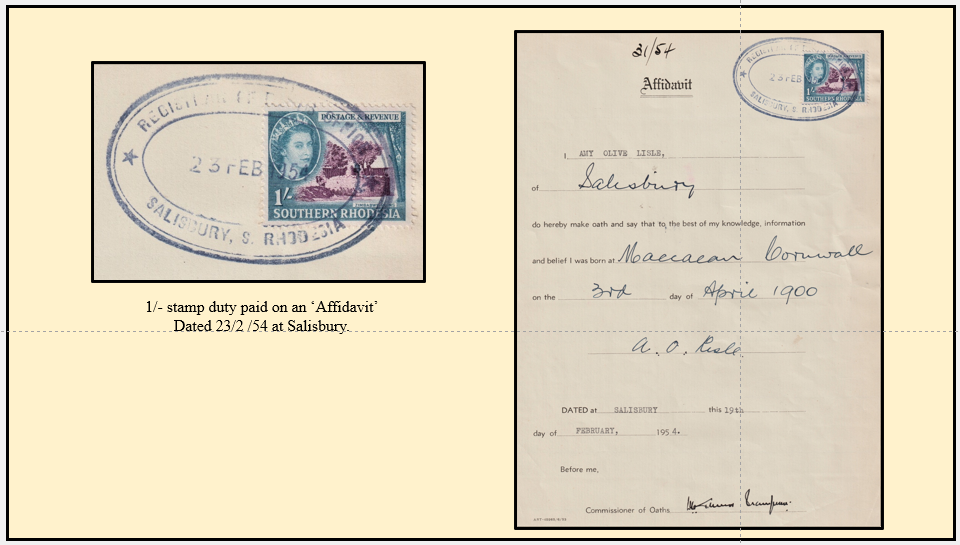 REGISTRAR OF
23 FEB 1954
SALISBURY, S. RHODESIA
POSTAGE & REVENUE
1/-
SOUTHERN RHODESIA
1/- stamp duty paid on an ‘Affidavit’
Dated 23/2 /54 at Salisbury.
31/54
Affidavit
REGISTRAR OF
23 FEB
SALISBURY, S. RHODESIA
1/-
SOUTHERN RHODESIA
I AMY OLIVE LISLE,
of Salisbury
do hereby make oath and say that to the best of my knowledge, information
and belief I was born at Cornwall
on the 3rd day of April 1900
A. O. Lisle.
DATED at SALISBURY this 19th
day of FEBRUARY, 1954.
Before me,
Commissioner of Oaths